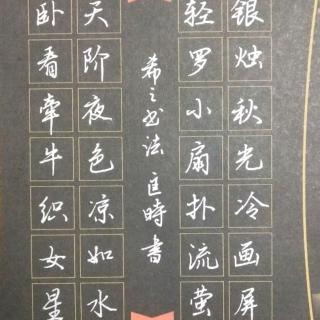 银烛秋光冷画屏
轻罗小扇扑流萤
希之书法匡時書
天阶夜色凉如水
卧看牵牛织女星